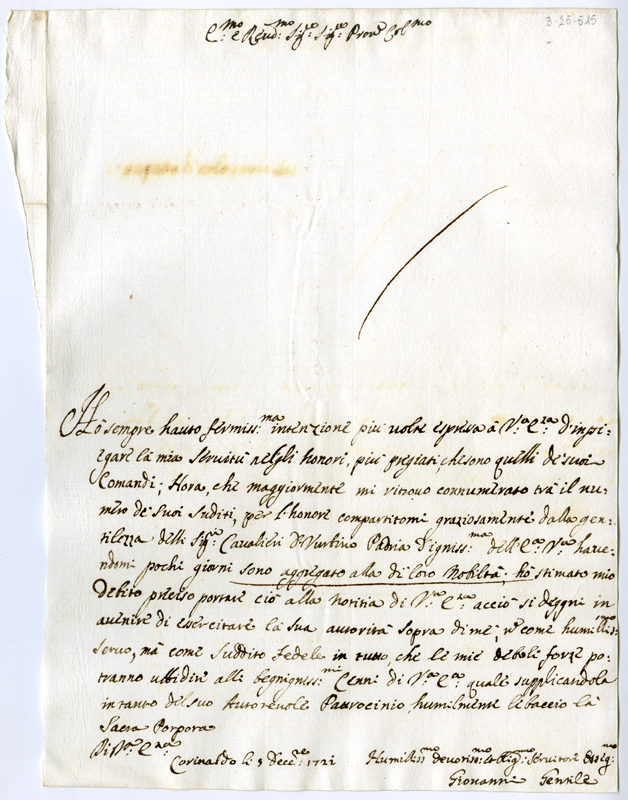 3-26-615
E.mo e Reud.mo Sig.re Sig.re Prone Col.mo
Ho sempre hauto fermiss.ma intenzione più uolte espresa à V.a E.za d'impi=
egare la mia seruitù nelgli honori, più pregiati, che sono quelli de suoi
Comandi; Hora, che maggiormente mi ritrouo connumerato trà il nu=
mero de suoi suditi, per l'honore compartitomi graziosamente dalla gen=
tilezza delli Sig.ri Caualieri d'Vurbino Padria Digniss.ma dell'E.a V.a haue=
ndomi pochi giorni sono aggregato alla di loro Nobiltà; hò stimato mio
debito preciso portare ciò alla notitia di V.a E.za acciò si deggni in
auenire di esercitare la sua autorità sopra di me, come humiliss.mo
seruo, mà come suddito fedele in tutto, che le mie deboli forze po=
tranno ubidire alli begnigniss.mi Cenni di V.a E.a quale supplicandola
intanto del suo Autoreuole Patrocinio, humilmente le baccio la
Sacra Porpora
Di V.a E.za
Corinaldo li 3 Decc.re 1721 Humiliss.mo deuotiss.mo et obblig.mo seruitore osseq.mo
Giovanni Gentile